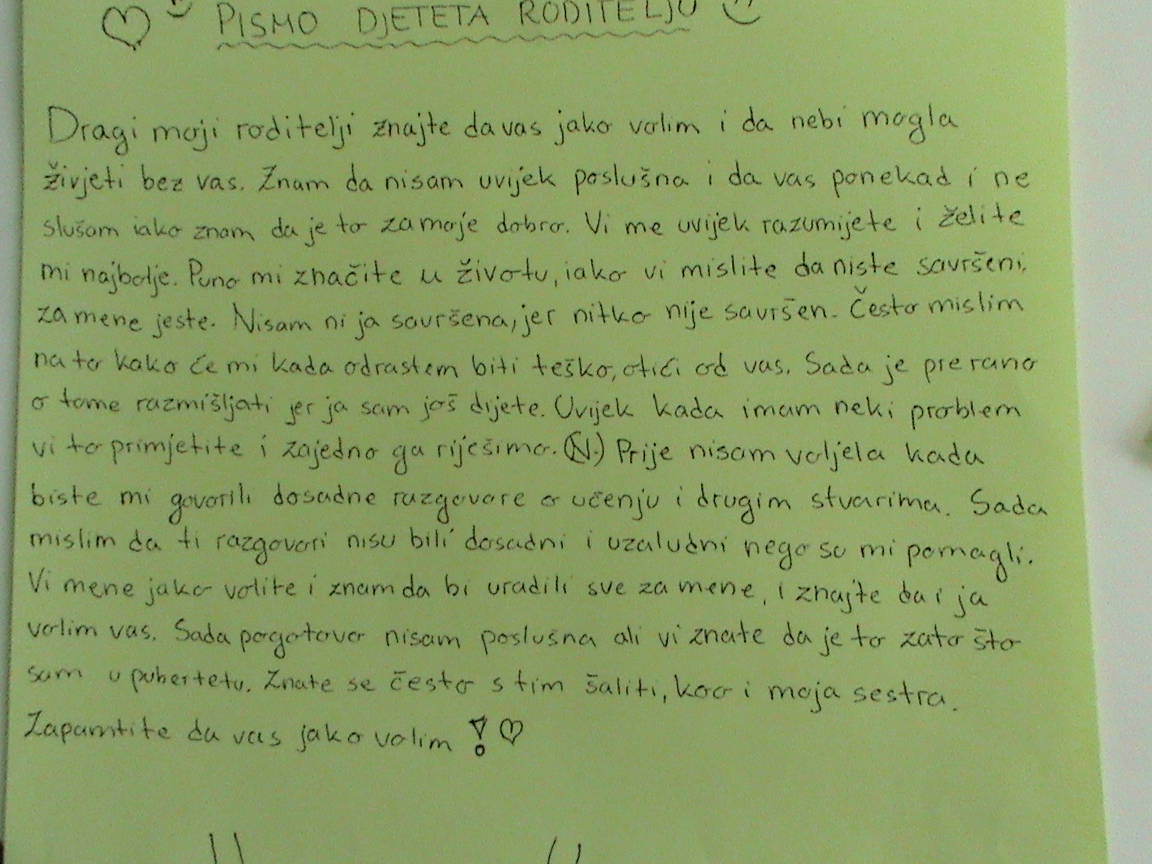 PISMO DJETETA RODITELJU
Dragi moji roditelji znajte da vas jako volim i da nebi mogla
živjeti bez vas. Znam da nisam uvijek poslušna i da vas ponekad i ne
slušam iako znam da je to za moje dobro. Vi me uvijek razumijete i želite
mi najbolje. Puno mi značite u životu, iako vi mislite da niste savršeni,
za mene jeste. Nisam ni ja savršena, jer nitko nije savršen. Često mislim
na to kako će mi kada odrastem biti teško, otići od vas. Sada je prerano
o tome razmišljati jer ja sam još dijete. Uvijek kada imam neki problem
vi to primjetite i zajedno ga riješimo. (N.) Prije nisam voljela kada
biste mi govorili dosadne razgovore o učenju i drugim stvarima. Sada
mislim da ti razgovori nisu bili dosadni i uzaludni nego su mi pomagli.
Vi mene jako volite i znam da bi uradili sve za mene, i znajte da i ja
volim vas. Sada pogotovo nisam poslušna ali vi znate da je to zato što
sam u pubertetu. Znate se često s tim šaliti, kao i moja sestra.
Zapamtite da vas jako volim !